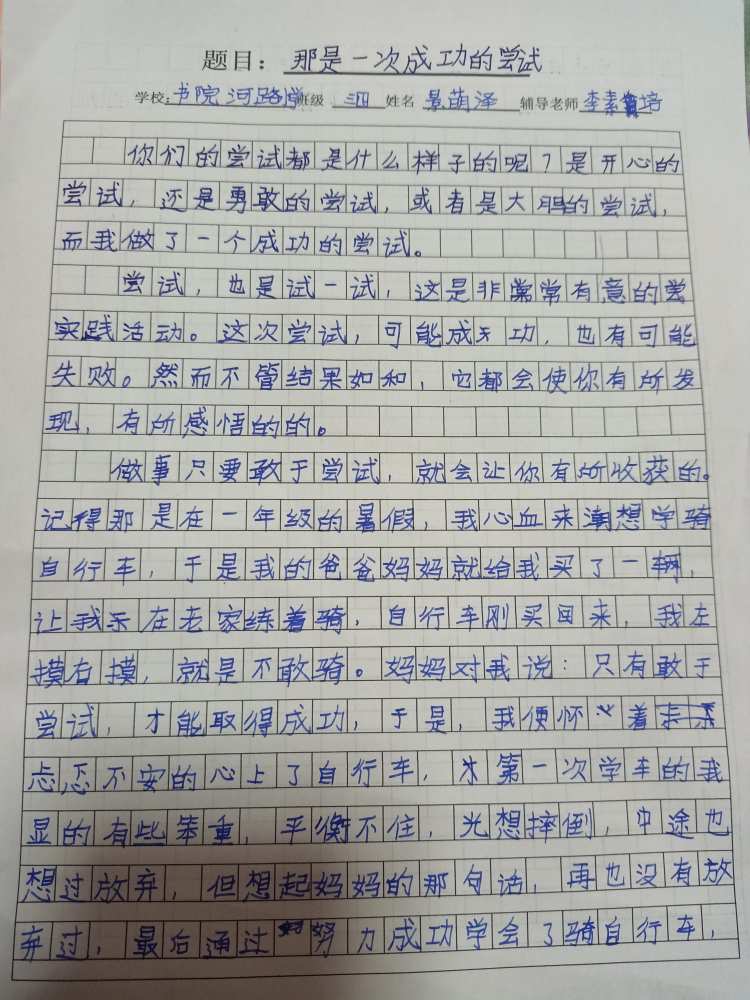 题目：那是一次成功的尝试
学校：书院河路学 班级 三四 姓名 景萌泽 辅导老师 李素培
你们的尝试都是什么样子的呢？是开心的
尝试，还是勇敢的尝试，或者是大胆的尝试，
而我做了一个成功的尝试。
尝试，也是试一试，这是非常常有意的尝
实践活动。这次尝试，可能成功，也有可能
失败。然而不管结果如和，它都会使你有所发
现，有所感悟的的。
做事只要敢于尝试，就会让你有所收获的。
记得那是在一年级的暑假，我心血来潮想学骑
自行车，于是我的爸爸妈妈就给我买了一辆，
让我在老家练着骑，自行车刚买回来，我左
摸右摸，就是不敢骑。妈妈对我说：只有敢于
尝试，才能取得成功，于是，我便怀着
忐忑不安的心上了自行车，第一次学车的我
显的有些笨重，平衡不住，光想摔倒，中途也
想过放弃，但想起妈妈的那句话，再也没有放
弃过，最后通过努力成功学会了骑自行车，